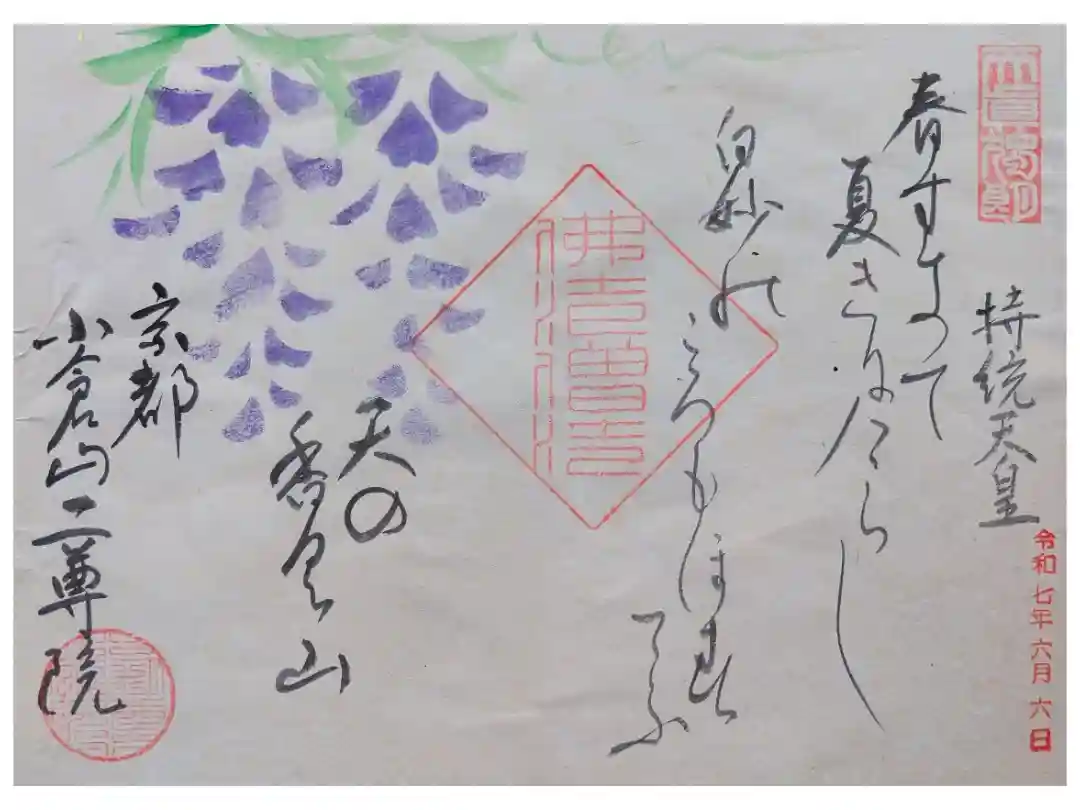 持統天皇
令和七年六月六日
春すきて
夏きにけらし
白妙の
ころもほす
てふ
天の
香具山
京都
小倉山二尊院